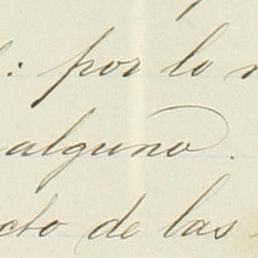 : por lo
alguno.
cto de las